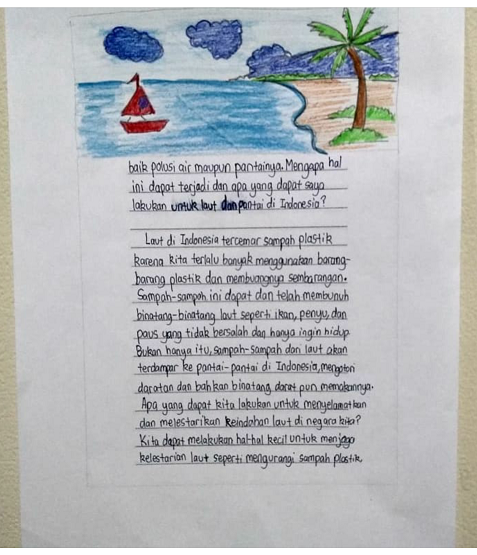 baik polusi air maupun pantainya. Mengapa hal
ini dapat terjadi dan apa yang dapat saya
lakukan untuk laut dan pantai di Indonesia?
Laut di Indonesia tercemar sampah plastik
karena kita terlalu banyak menggunakan barang-
barang plastik dan membuangnya sembarangan.
Sampah-sampah ini dapat dan telah membunuh
binatang-binatang laut seperti ikan, penyu, dan
paus yang tidak bersalah dan hanya ingin hidup.
Bukan hanya itu, sampah-sampah dari laut akan
terdampar ke pantai-pantai di Indonesia, mengotori
daratan dan bahkan binatang darat pun memakannya.
Apa yang dapat kita lakukan untuk menyelamatkan
dan melestarikan keindahan laut di negara kita?
Kita dapat melakukan hal-hal kecil untuk menjaga
kelestarian laut seperti mengurangi sampah plastik,